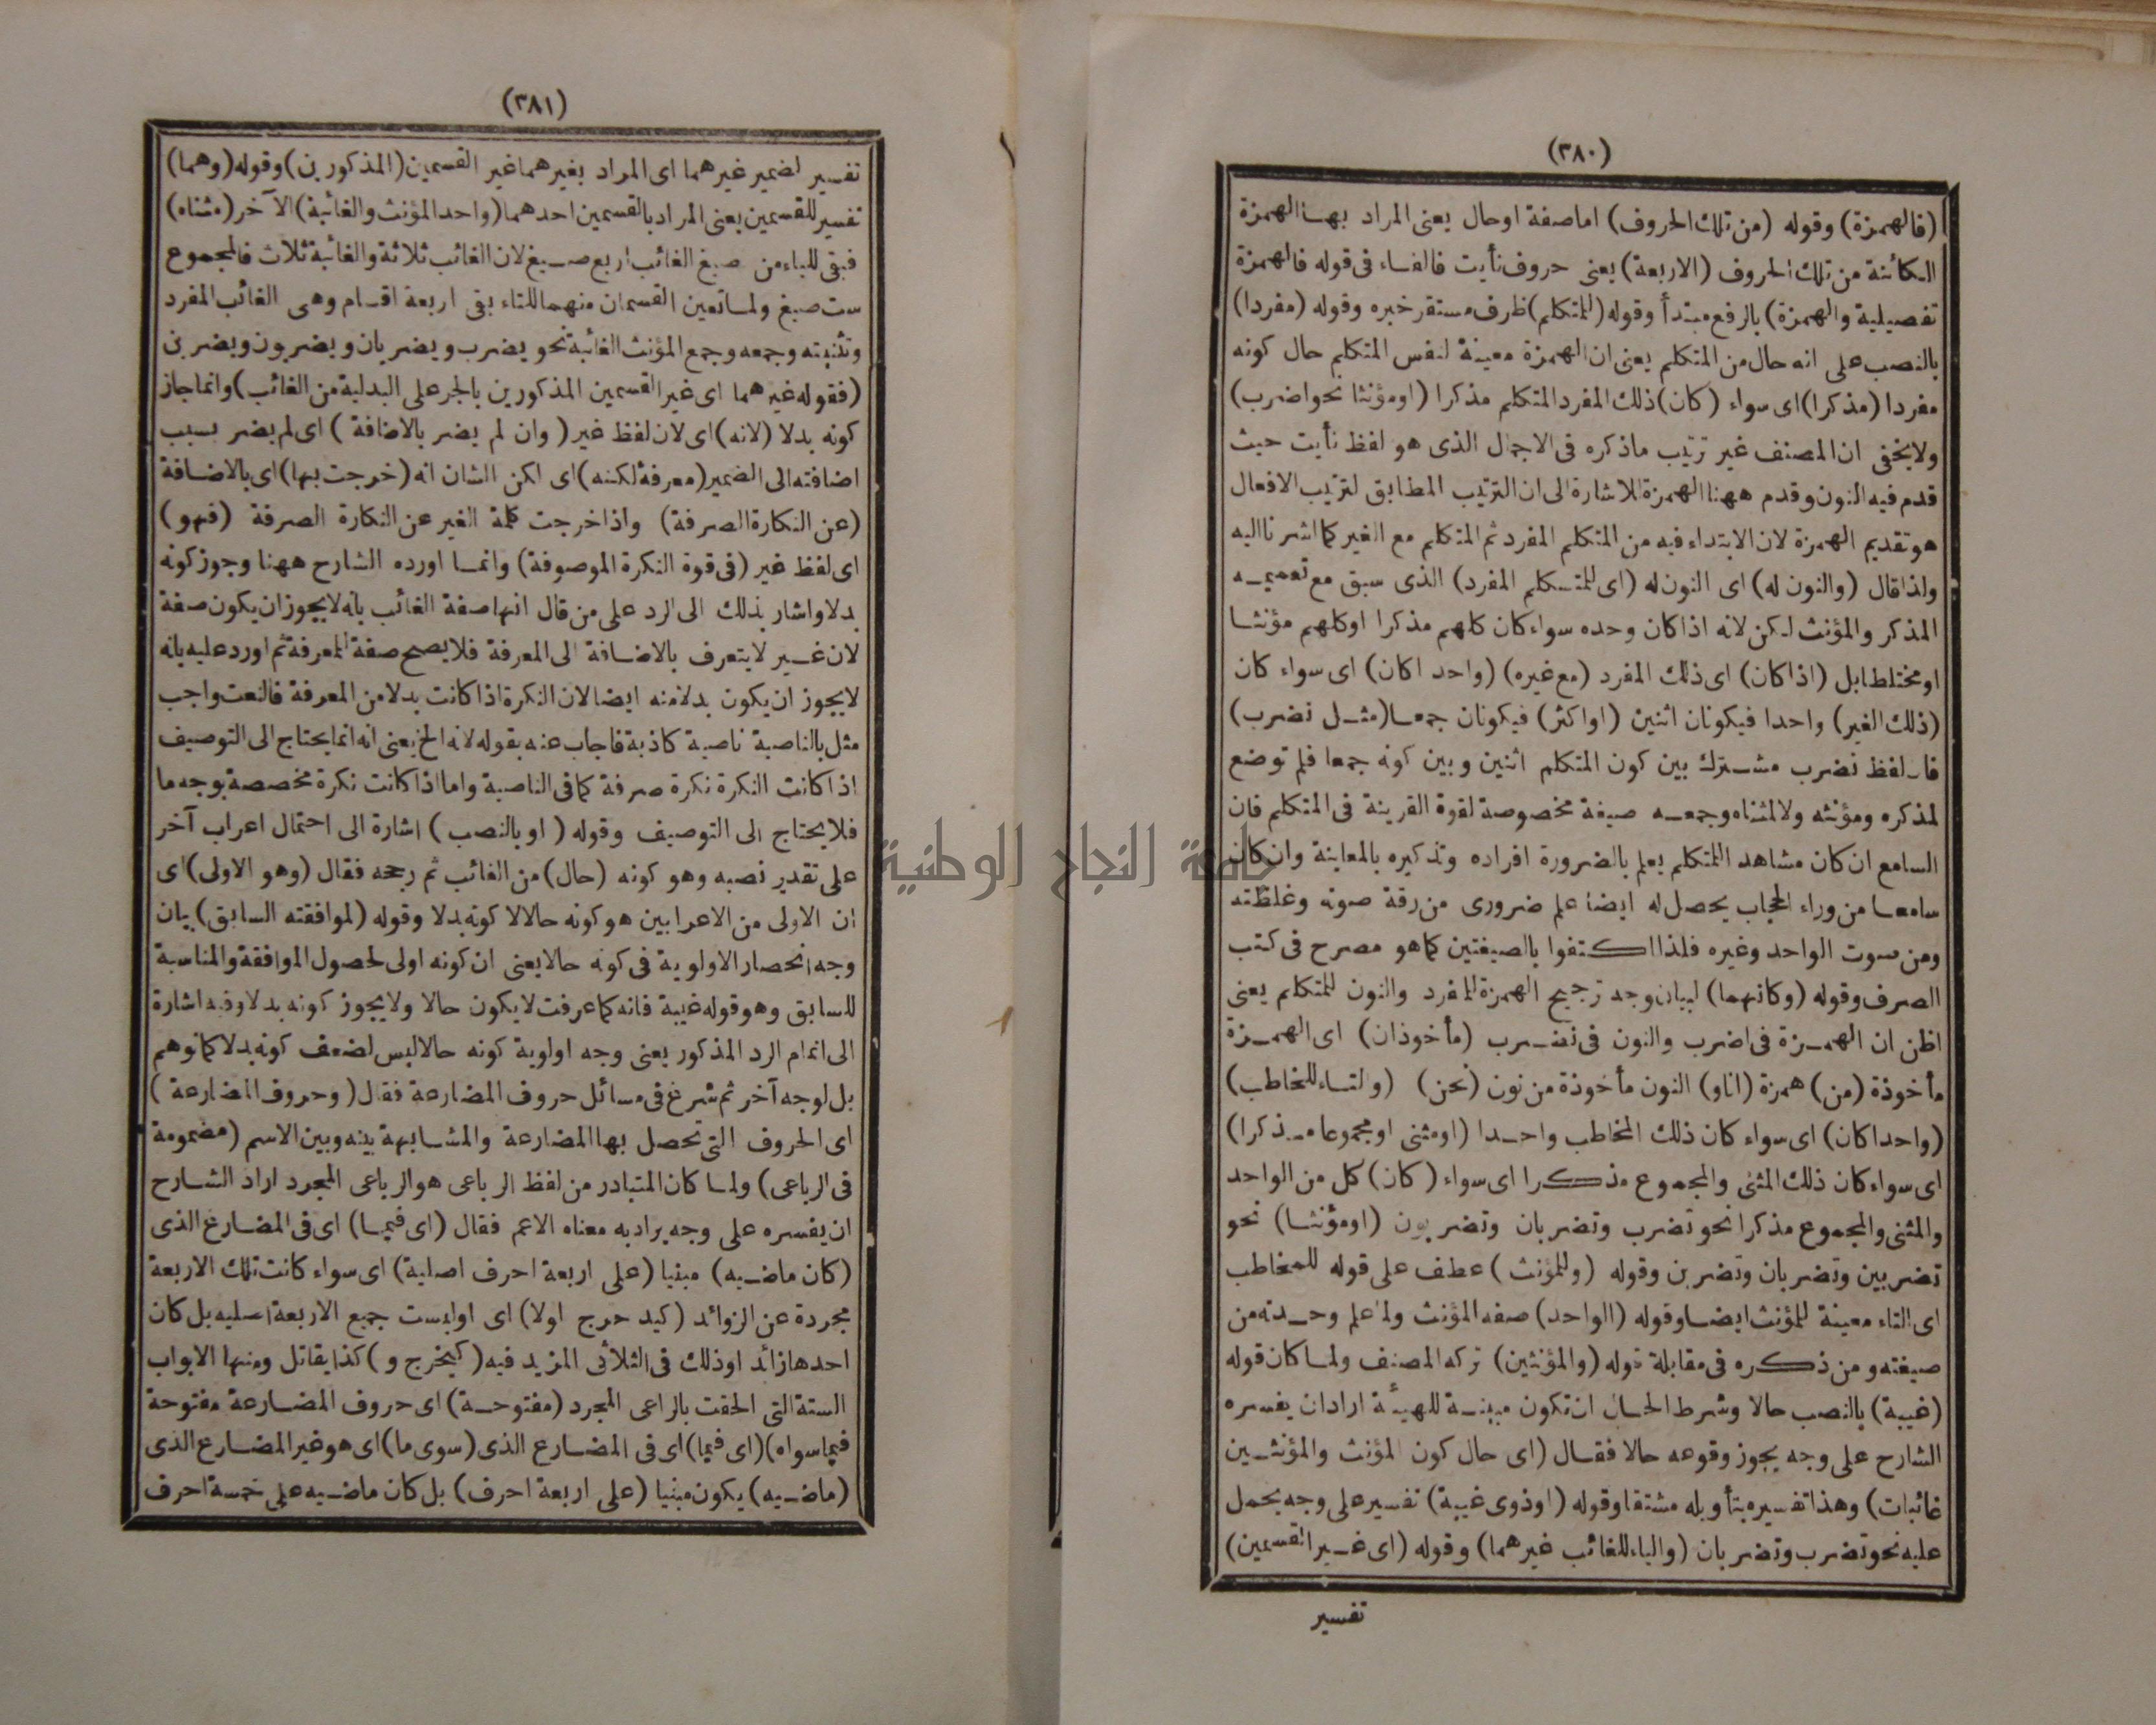 (٣٨٠)
(فالهمزة) وقوله (من تلك الحروف) اما صفة او حال يعنى المراد بها الهمزة
الكائنة من تلك الحروف (الاربعة) يعنى حروف نأيت فالفاء فى قوله فالهمزة
تفصيلية والهمزة) بالرفع مبتدأ وقوله (للمتكلم) ظرف مستقر خبره وقوله (مفردا)
بالنصب على انه حال من المتكلم يعنى ان الهمزة معينة لنفس المتكلم حال كونه
مفردا (مذكرا) اى سواء (كان) ذلك المفرد المتكلم مذكرا (او مؤنثا نحو اضرب)
ولا يخفى ان المصنف غير ترتيب ماذكره فى الاجمال الذى هو لفظ نأيت حيث
قدم فيه النون وقدم ههنا الهمزة للاشارة الى ان الترتيب المطابق لترتيب الافعال
هو تقديم الهمزة لان الابتداء فيه من المتكلم المفرد ثم المتكلم مع الغير كما اشرنا اليه
ولذا قال (والنون له) اى النون له (اى للمتكلم المفرد) الذى سبق مع تعميمه
المذكر والمؤنث لكن لانه اذا كان وحده سواء كان كلهم مذكرا او كلهم مؤنثا
او مختلطا بل (اذا كان) اى ذلك المفرد (مع غيره) (واحدا كان) اى سواء كان
(ذلك الغير) واحدا فيكونان اثنين (او اكثر) فيكونان جمعا (مثل نضرب)
فان لفظ نضرب مشترك بين كون المتكلم اثنين وبين كونه جمعا فلم توضع
لمذكره ومؤنثه ولا لمثناه وجمعه صيغة مخصوصة لقوة القرينة فى المتكلم فان
السامع ان كان مشاهد المتكلم يعلم بالضرورة افراده وتذكيره بالمعاينة وان كان
سامعا من وراء الحجاب يحصل له ايضا علم ضرورى من رقة صوته وغلظته
ومن صوت الواحد وغيره فلذا اكتفوا بالصيغتين كما هو مصرح فى كتب
الصرف وقوله (وكانهما) لبيان وجه ترجيح الهمزة للمفرد والنون للمتكلم يعنى
اظن ان الهمزة فى اضرب والنون فى نضرب (مأخوذان) اى الهمزة
مأخوذة (من) همزة (انا و) النون مأخوذة من نون (نحن) (والتاء للمخاطب)
(واحدا كان) اى سواء كان ذلك المخاطب واحدا (او مثنى او مجموعا مذكرا)
اى سواء كان ذلك المثنى والمجموع مذكرا اى سواء (كان) كل من الواحد
والمثنى والمجموع مذكرا نحو تضرب وتضربان وتضربون (او مؤنثا) نحو
تضربين وتضربان وتضربن وقوله (وللمؤنث) عطف على قوله للمخاطب
اى التاء معينة للمؤنث ايضا وقوله (الواحد) صفه المؤنث ولما علم وحدته من
صيغته ومن ذكره فى مقابلة قوله (والمؤنثين) تركه المصنف ولما كان قوله
(غيبة) بالنصب حالا وشرط الحال ان تكون مبينة للهيئة اراد ان يفسره
الشارح على وجه يجوز وقوعه حالا فقال (اى حال كون المؤنث والمؤنثين
غائبات) وهذا تفسيره بتأويله مشتقا وقوله (او ذوى غيبة) تفسير على وجه يحمل
عليه نحو تضرب وتضربان (والياء للغائب غيرهما) وقوله (اى غير القسمين)
تفسير
(٣٨١)
تفسير لضمير غيرهما اى المراد بغيرهما غير القسمين (المذكورين) وقوله (وهما)
تفسير للقسمين يعنى المراد بالقسمين احدهما (واحد المؤنث والغائبة) الآخر (مثناه)
فبقى للياء من صيغ الغائب اربع صيغ لان الغائب ثلاثة والغائبة ثلاث فالمجموع
ست صيغ ولما تعين القسمان منهما للتاء بقى اربعة اقسام وهى الغائب المفرد
وتثنيته وجمعه وجمع المؤنث الغائبة نحو يضرب ويضربان ويضربون ويضربن
(فقوله غيرهما اى غير القسمين المذكورين بالجر على البدلية من الغائب) وانما جاز
كونه بدلا (لانه) اى لان لفظ غير (وان لم يضر بالاضافة) اى لم يضر بسبب
اضافته الى الضمير (معرفة لكنه) اى لكن الشان انه (خرجت بها) اى بالاضافة
(عن النكارة الصرفة) واذا خرجت كلمة الغير عن النكارة الصرفة (فهو)
اى لفظ غير (فى قوة النكرة الموصوفة) وانما اورده الشارح ههنا وجوز كونه
بدلا واشار بذلك الى الرد على من قال انها صفة الغائب بانه لا يجوز ان يكون صفة
لان غير لا يتعرف بالاضافة الى المعرفة فلا يصح صفة للمعرفة ثم اورد عليه بانه
لا يجوز ان يكون بدلا منه ايضا لان النكرة اذا كانت بدلا من المعرفة فالنعت واجب
مثل بالناصية ناصية كاذبة فاجاب عنه بقوله لانه الخ يعنى انه انما يحتاج الى التوصيف
اذا كانت النكرة نكرة صرفة كما فى الناصية واما اذا كانت نكرة مخصصة بوجه ما
فلا يحتاج الى التوصيف وقوله (او بالنصب) اشارة الى احتمال اعراب آخر
على تقدير نصبه وهو كونه (حال) من الغائب ثم رجحه فقال (وهو الاولى) اى
ان الاولى من الاعرابين هو كونه حالا لا كونه بدلا وقوله (لموافقته السابق) بيان
وجه انحصار الاولوية فى كونه حالا يعنى ان كونه اولى لحصول الموافقة والمناسبة
للسابق وهو قوله غيبة فانه كما عرفت لا يكون حالا ولا يجوز كونه بدلا وفيه اشارة
الى اتمام الرد المذكور يعنى وجه اولوية كونه حالا ليس لضعف كونه بدلا كما توهم
بل لوجه آخر ثم شرع فى مسائل حروف المضارعة فقال (وحروف المضارعة)
اى الحروف التى تحصل بها المضارعة والمشابهة بينه وبين الاسم (مضمومة
فى الرباعى) ولما كان المتبادر من لفظ الرباعى هو الرباعى المجرد اراد الشارح
ان يفسره على وجه يراد به معناه الاعم فقال (اى فيما) اى فى المضارع الذى
(كان ماضيه) مبنيا (على اربعة احرف اصلية) اى سواء كانت تلك الاربعة
مجردة عن الزوائد (كيدحرج اولا) اى او ليست جميع الاربعة اصليه بل كان
احدها زائد او ذلك فى الثلاثى المزيد فيه (كيخرج و) كذا يقاتل ومنها الابواب
الستة التى الحقت بالرباعى المجرد (مفتوحة) اى حروف المضارعة مفتوحة
فيما سواه) (اى فيما) اى فى المضارع الذى (سوى ما) اى هو غير المضارع الذى
(ماضيه) يكون مبنيا (على اربعة احرف) بل كان ماضيه على خمسة احرف
جامعة النجاح الوطنية